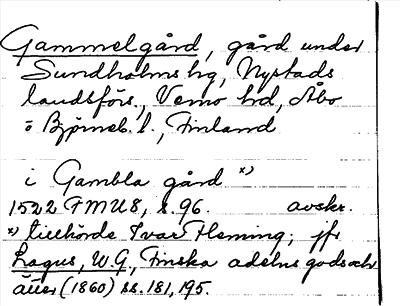 Gammelgård, gård under
Sundholms hg, Nystads
landsförs., Vemo hd, Åbo
o Björneb. l., Finland
i Gambla gård x)
1522 FMU8, s. 96. avskr.
x) tillhörde Ivar Fleming; jfr
Lagus, W.G, Finska adelns gods och
ätter (1860) ss. 181, 195.